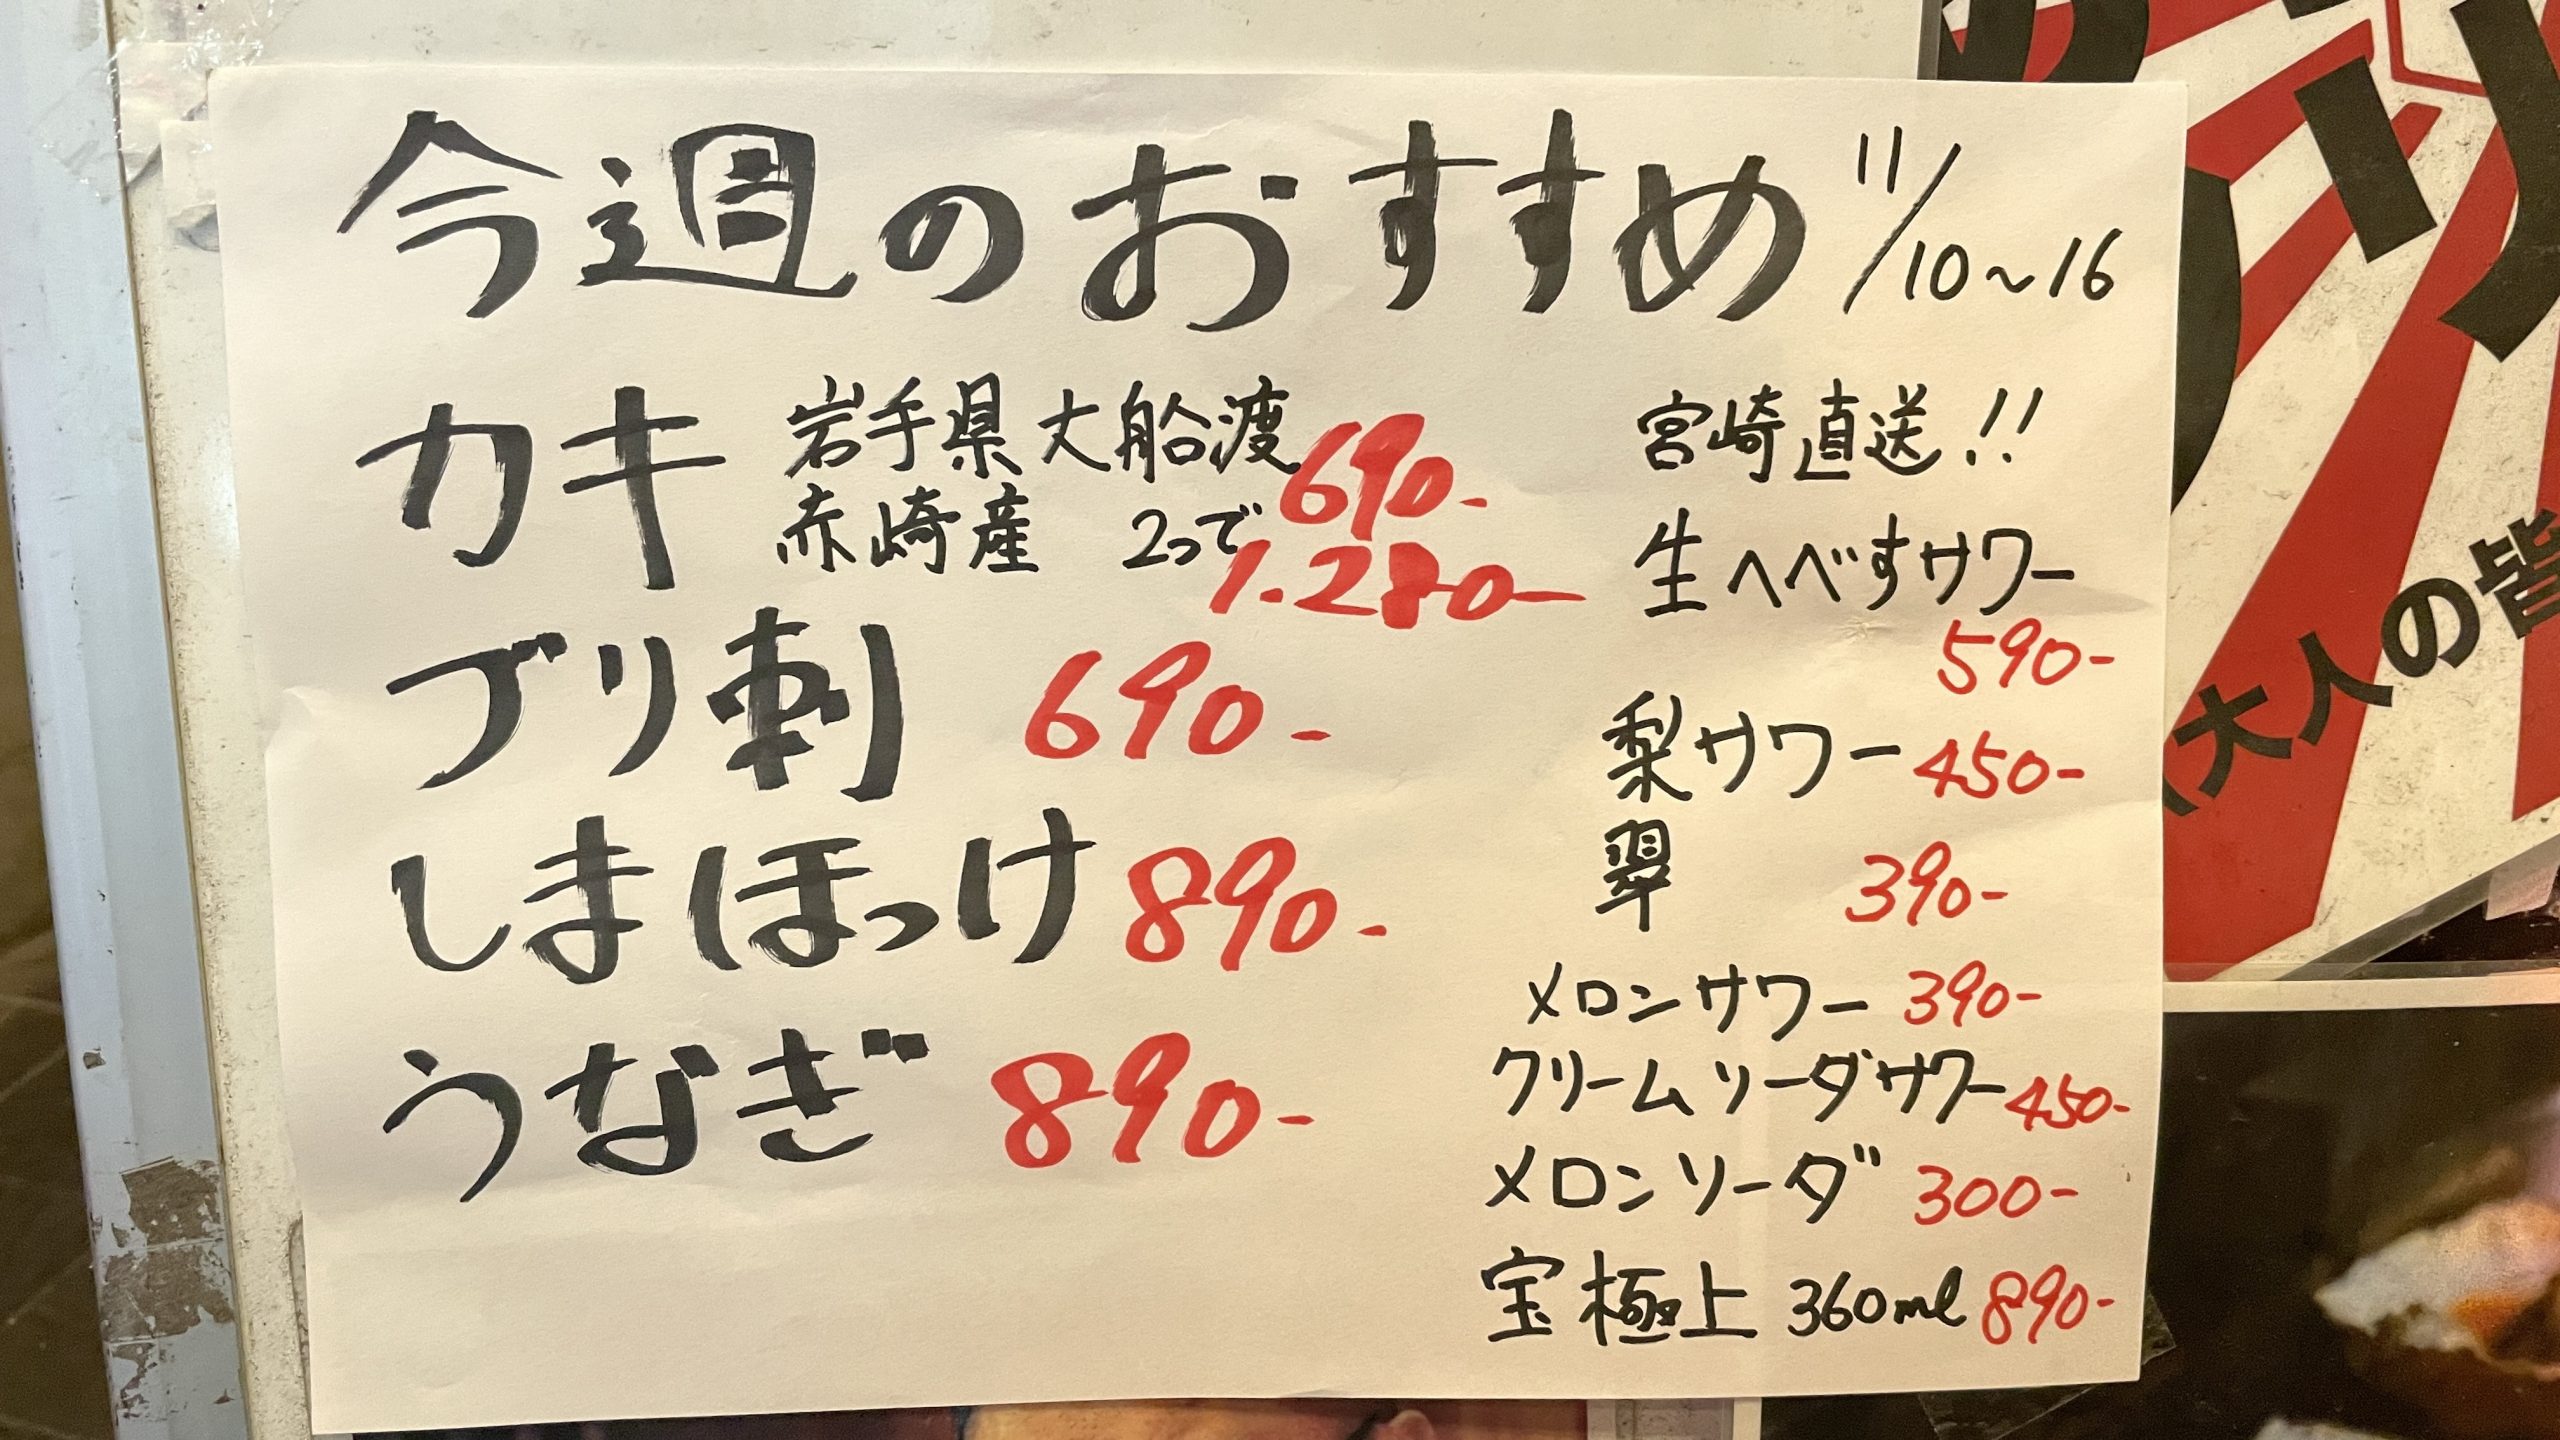 今週のおすすめ 11/10~16
カキ 岩手県大船渡 690-
赤崎産 2つで 1.280-
ブリ刺 690-
しまほっけ 890-
うなぎ 890-
宮崎直送!!
生へべすサワー
590-
梨サワー 450-
翠 390-
メロンサワー 390-
クリームソーダサワー 450-
メロンソーダ 300-
宝極上 360ml 890-
大人の皆